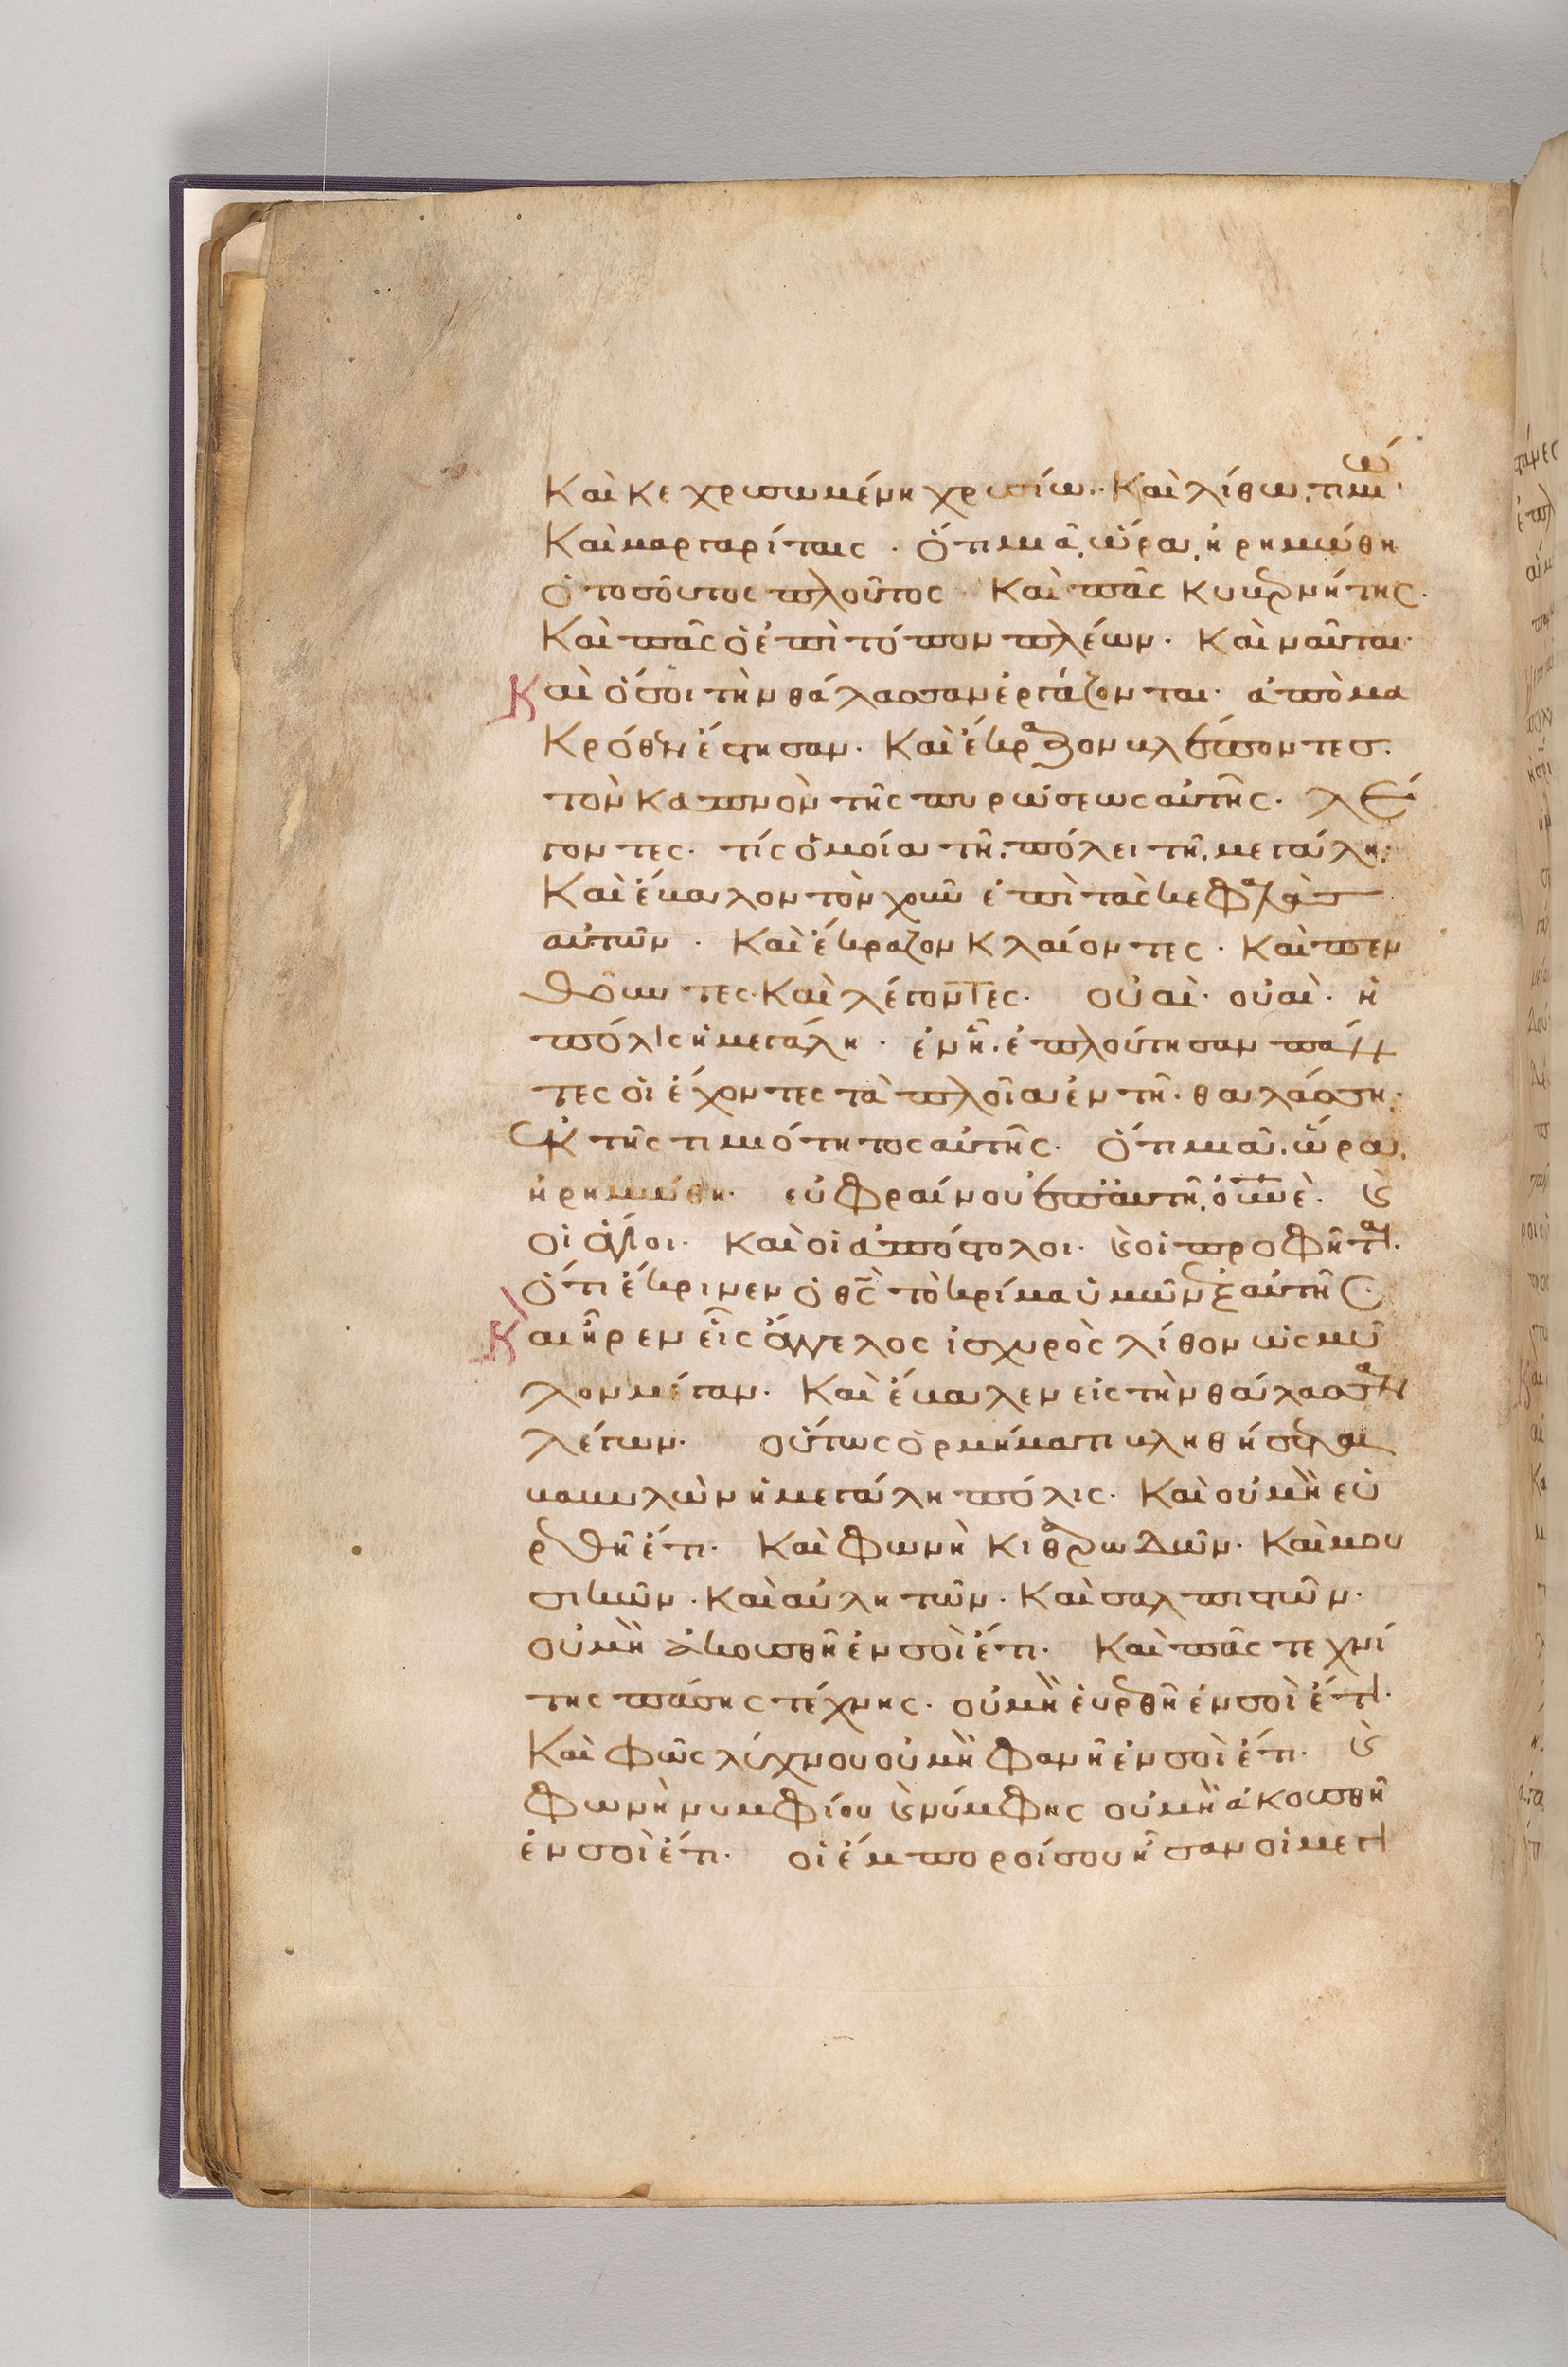 Καὶ κεχρυσωμένη χρυσίω· Καὶ λίθω τιμίω·
Καὶ μαργαρίταις· Ὅτι μιᾶ ὥρα ἠρημώθη
ὁ τοσοῦτος πλοῦτος Καὶ πᾶς κυβερνήτης·
Καὶ πᾶς ὁ ἐπὶ τόπον πλέων· Καὶ ναῦται·
Καὶ ὅσοι τὴν θάλασσαν ἐργάζονται· ἀπὸ μα
κρόθεν ἔστησαν· Καὶ ἔκραξον βλέποντεσ·
τὸν καπνὸν τῆς πυρώσεως αὐτῆς· λέ
γοντες· τίς ὁμοία τῆ πόλει τῆ μεγάλη;
Καὶ ἔβαλον τὸν χοῦν ἐπὶ τὰς κεφαλὰσ
αὐτῶν· Καὶ ἔκραζον κλαίοντες· Καὶ πεν
θοῦντες· Καὶ λέγοντες· οὐαὶ· οὐαὶ· ἡ
πόλις ἡ μεγάλη· ἐν ἧ ἐπλούτησαν πάν
τες οἱ ἔχοντες τὰ πλοῖα ἐν τῆ θαλάσση·
ἐκ τῆς τιμιότητος αὐτῆς· Ὅτι μιᾶ ὥρα
ἠρημώθη· εὐφραίνου ἐπ' αὐτῆ οὐνὲ· κ
οἱ ἅγιοι· Καὶ οἱ ἀπόστολοι· κ οἱ προφῆται·
Ὅτι ἔκρινεν ὁ θς τὸ κρίμα ὑμῶν ἐξ αὐτῆς·
Και ἦρεν εἷς ἄγγελος ἰσχυρὸς λίθον ὡς μύ
λον μέγαν· Καὶ ἔβαλεν εἰς τὴν θάλασσαν
λέγων· οὕτως ὁρμήματι βληθήσεται
βαβυλὼν ἡ μεγάλη πόλις· Καὶ οὐ μὴ εὑ
ρεθῆ ἔτι· Καὶ φωνὴ κιθαρωδῶν· Καὶ μου
σικῶν· Καὶ αὐλητῶν· Καὶ σαλπιστῶν·
οὐ μὴ ἀκουσθῆ ἐν σοὶ ἔτι· Καὶ πᾶς τεχνί
της πάσης τέχνης· οὐ μὴ εὑρεθῆ ἐν σοὶ ἔτι·
Καὶ φῶς λύχνου οὐ μὴ φανῆ ἐν σοὶ ἔτι· κ
φωνὴ νυμφίου κ νύμφης οὐ μὴ ἀκουσθῆ
ἐν σοὶ ἔτι· οἱ ἔμποροί σου ἦσαν οἱ μεγι